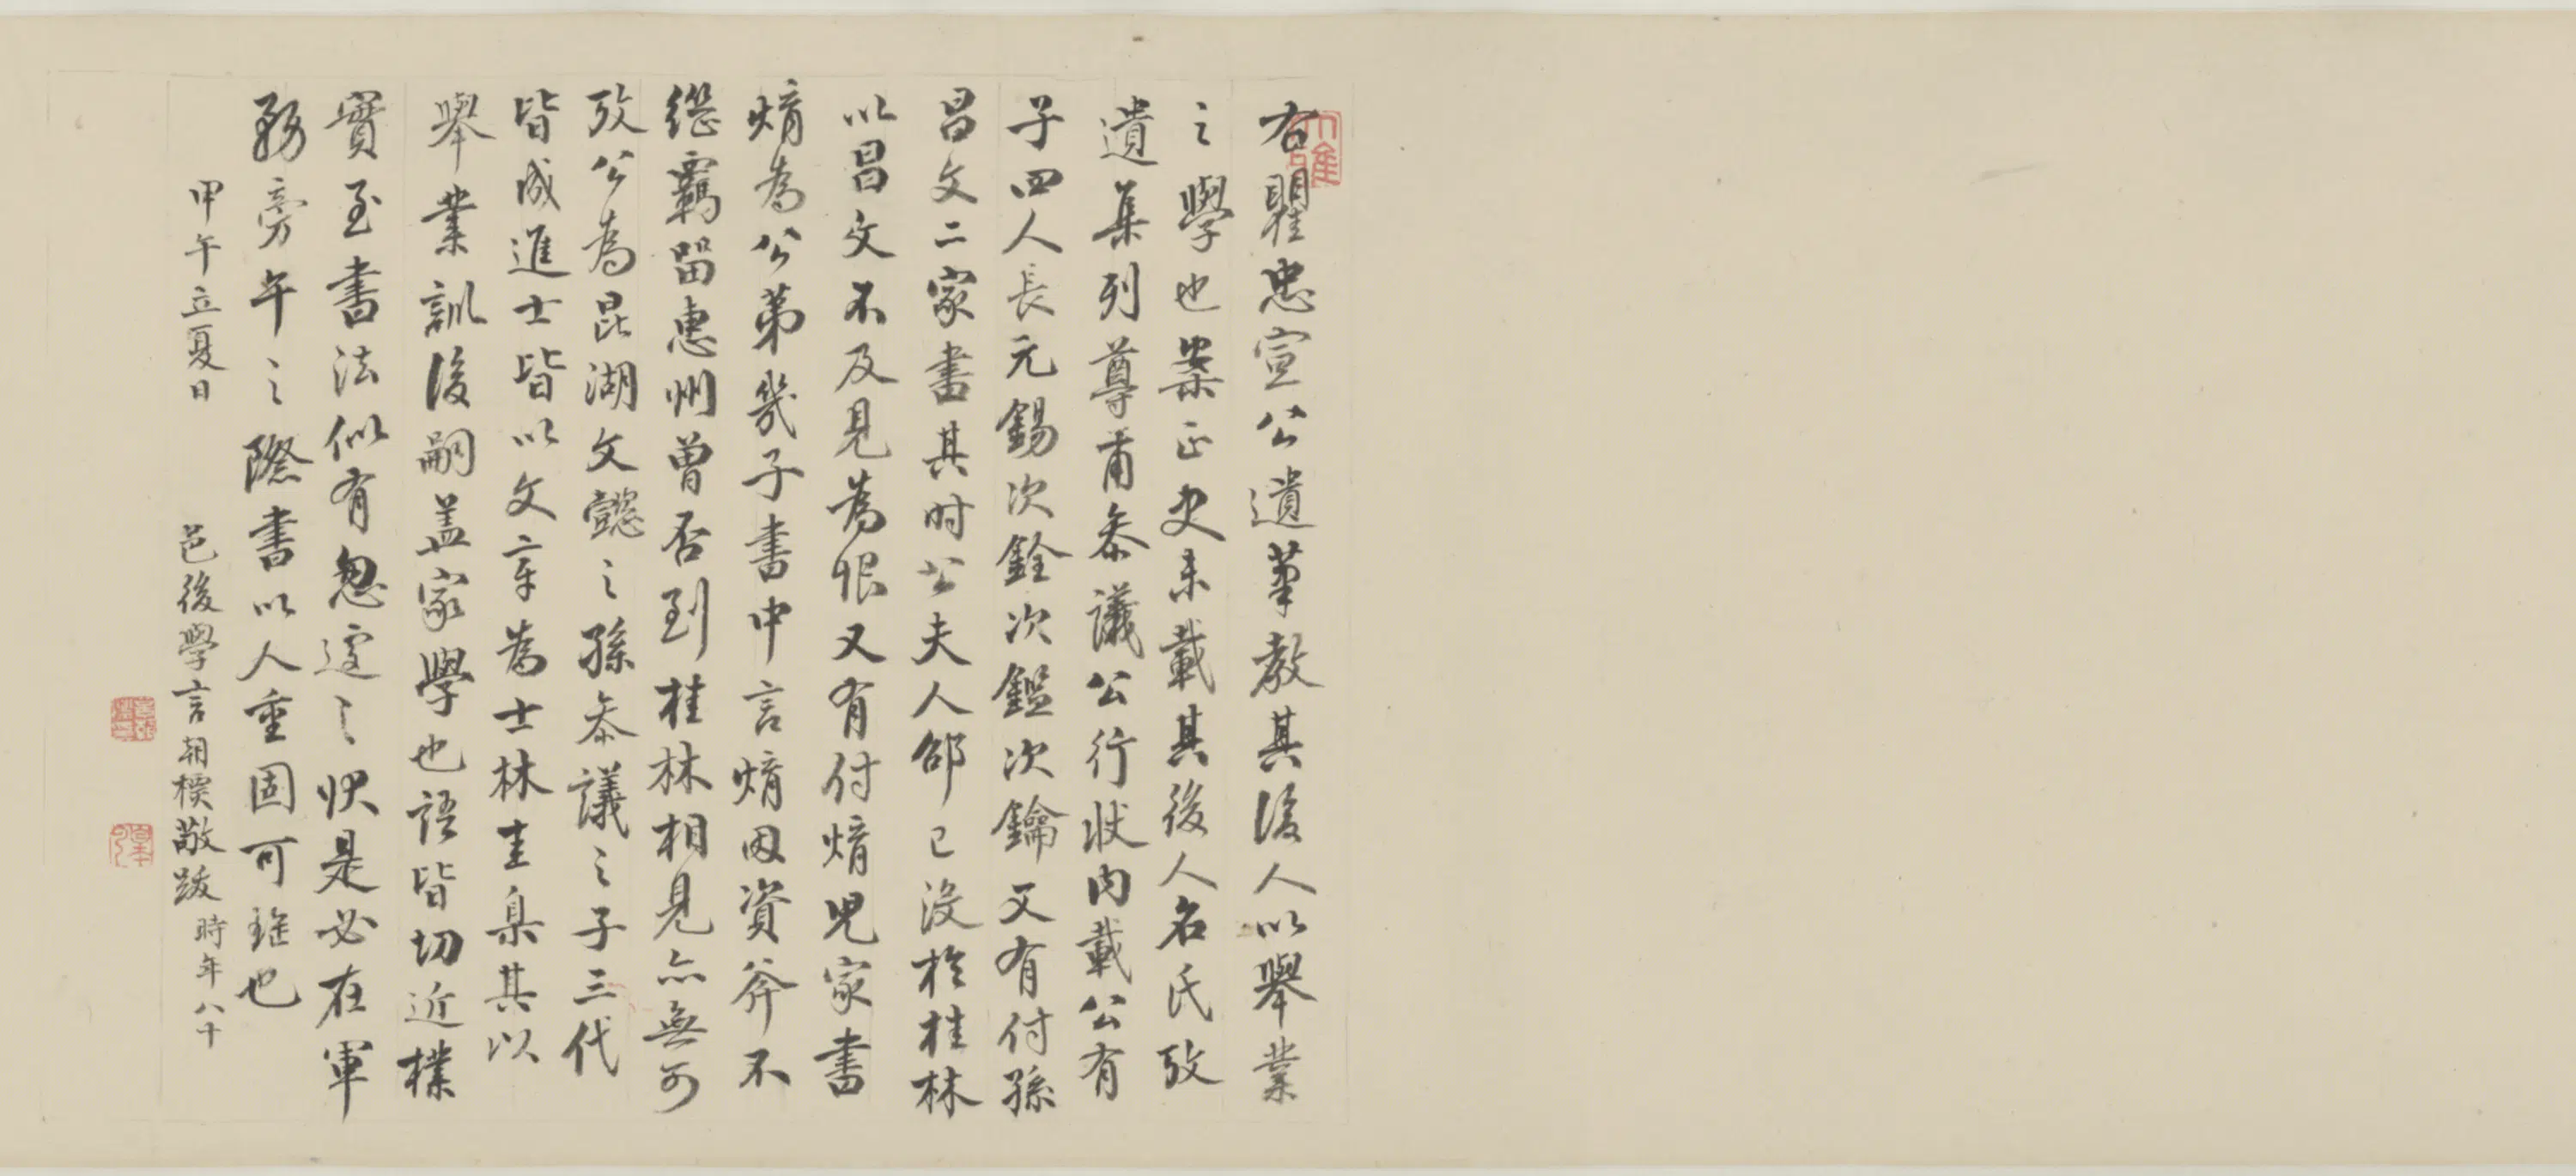 右瞿忠宣公遺筆教其後人以舉業
之學也案正史未載其後人名氏攷
遺集列尊甫叅議公行狀内載公有
子四人長元錫次銓次鑑次鑰又有付孫
昌文二家書其时公夫人邵已没於桂林
以昌文不及見為恨又有付焴児家書
焴為公第幾子書中言焴因資斧不
繼羈留惠州曾否到桂林相見亦無可
攷公為昆湖文懿之孫叅議之子三代
皆成進士皆以文章為士林圭臬其以
舉業訓後嗣盖家學也語皆切近樸
實至書法似有怱遽之状是必在軍
務旁午之際書以人重固可珎也
甲午立夏日
邑後學言朝標敬跋時年八十